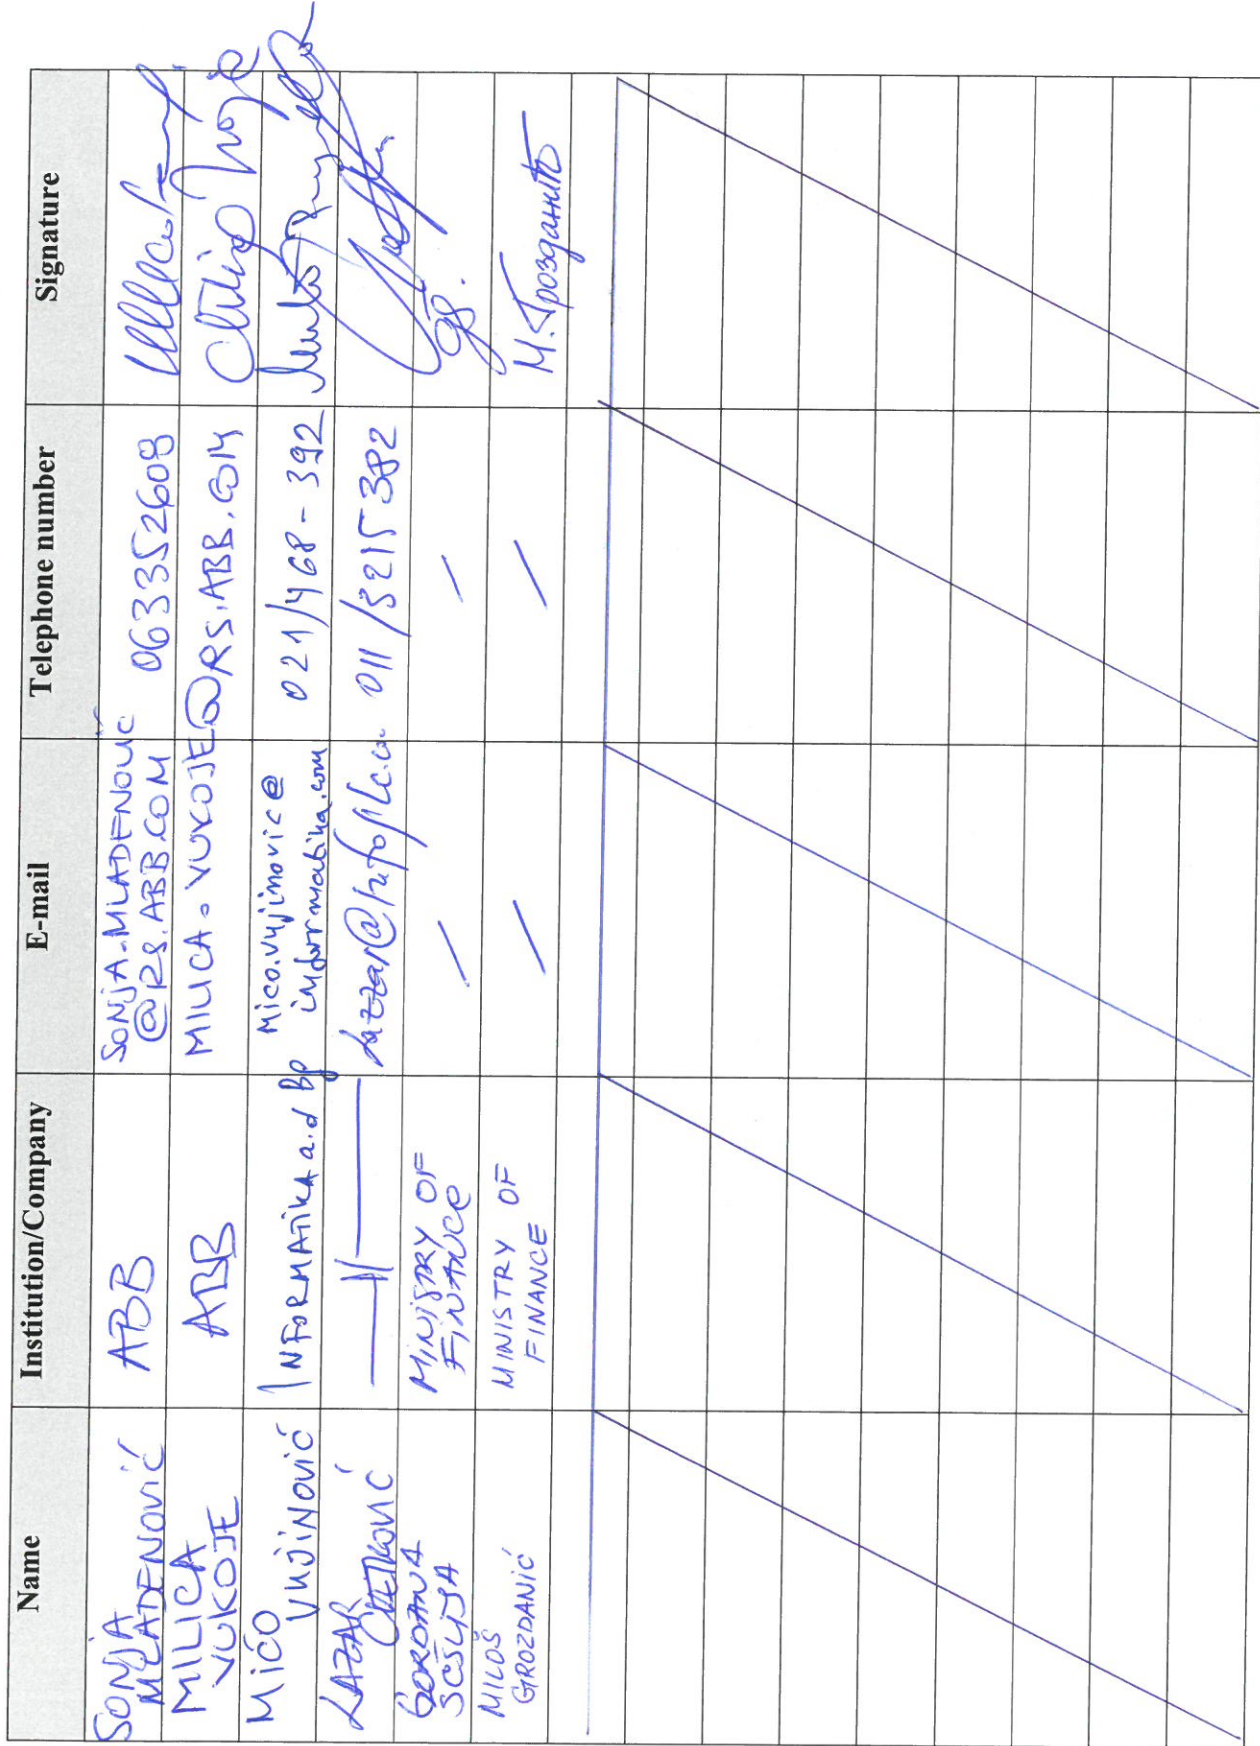 Name Institution/Company E-mail Telephone number Signature
SONJA
MLADENOVIĆ
ABB
SONJA.MLADENOVIC
@RS.ABB.COM
063352609
MILICA
VUKOJE
ABB
MILICA.VUKOJE@RS.ABB.COM
MIĆO
VUJINOVIĆ
INFORMATIKA a.d
Mico.vujinovic@
informatika.com
021/468-392
LAZAR
CVETKOVIĆ
011/3215382
GORDANA
MINISTRY OF
FINANCE
/
/
MILOŠ
GROZDANIĆ
MINISTRY OF
FINANCE
/
/
М. Грозданић